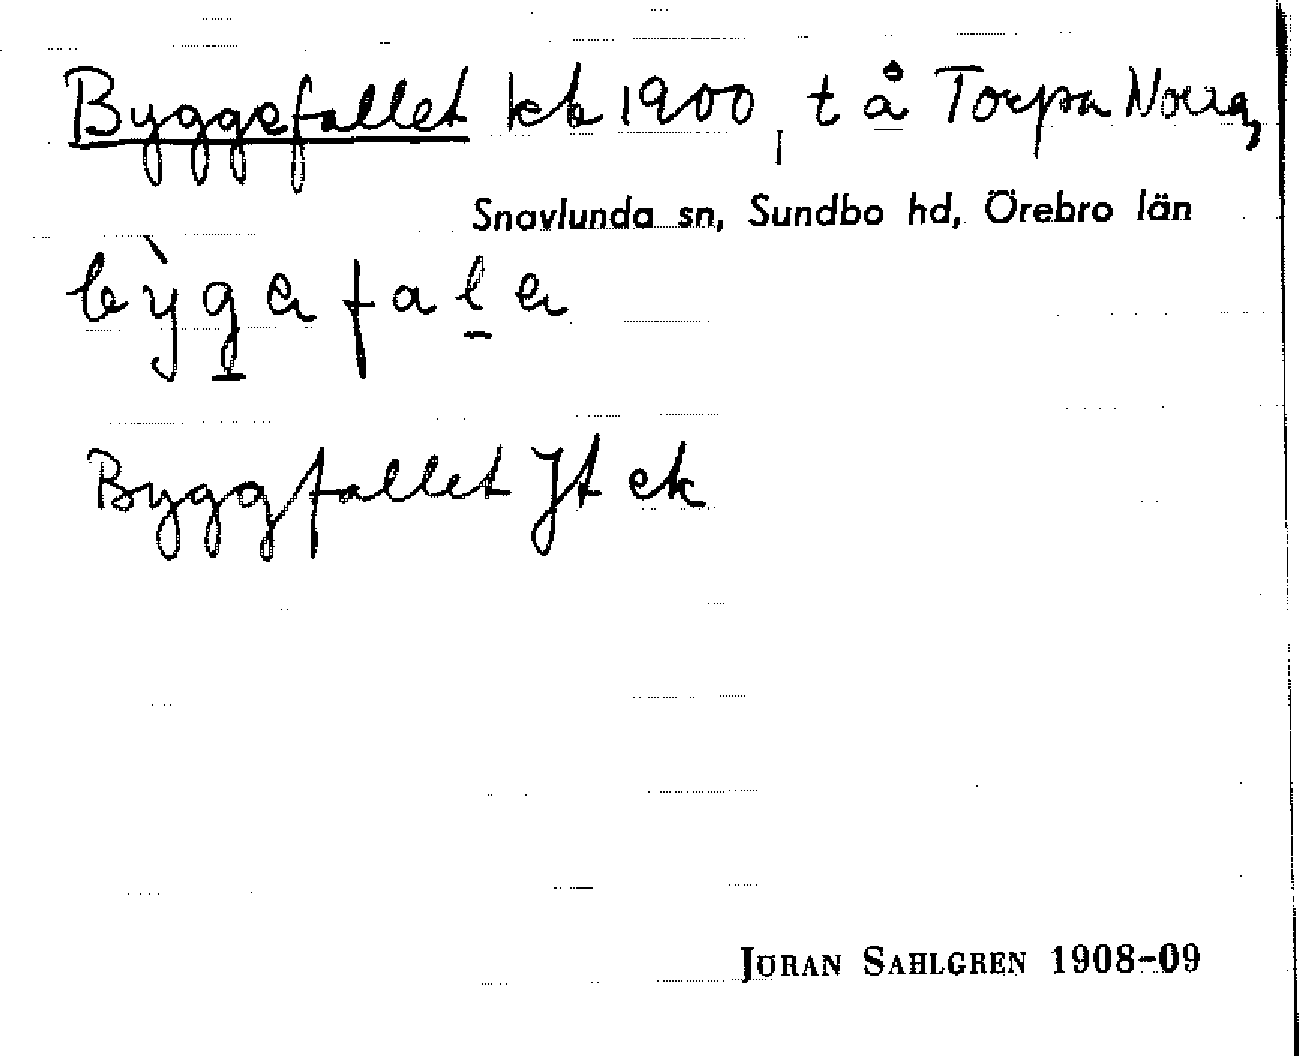 Byggefallet kb 1900, t å Torpa Norra,
Snavlunda sn, Sundbo hd, Örebro län
bỳgəfalə
Byggfallet Jt ek
JÖRAN SAHLGREN 1908-09